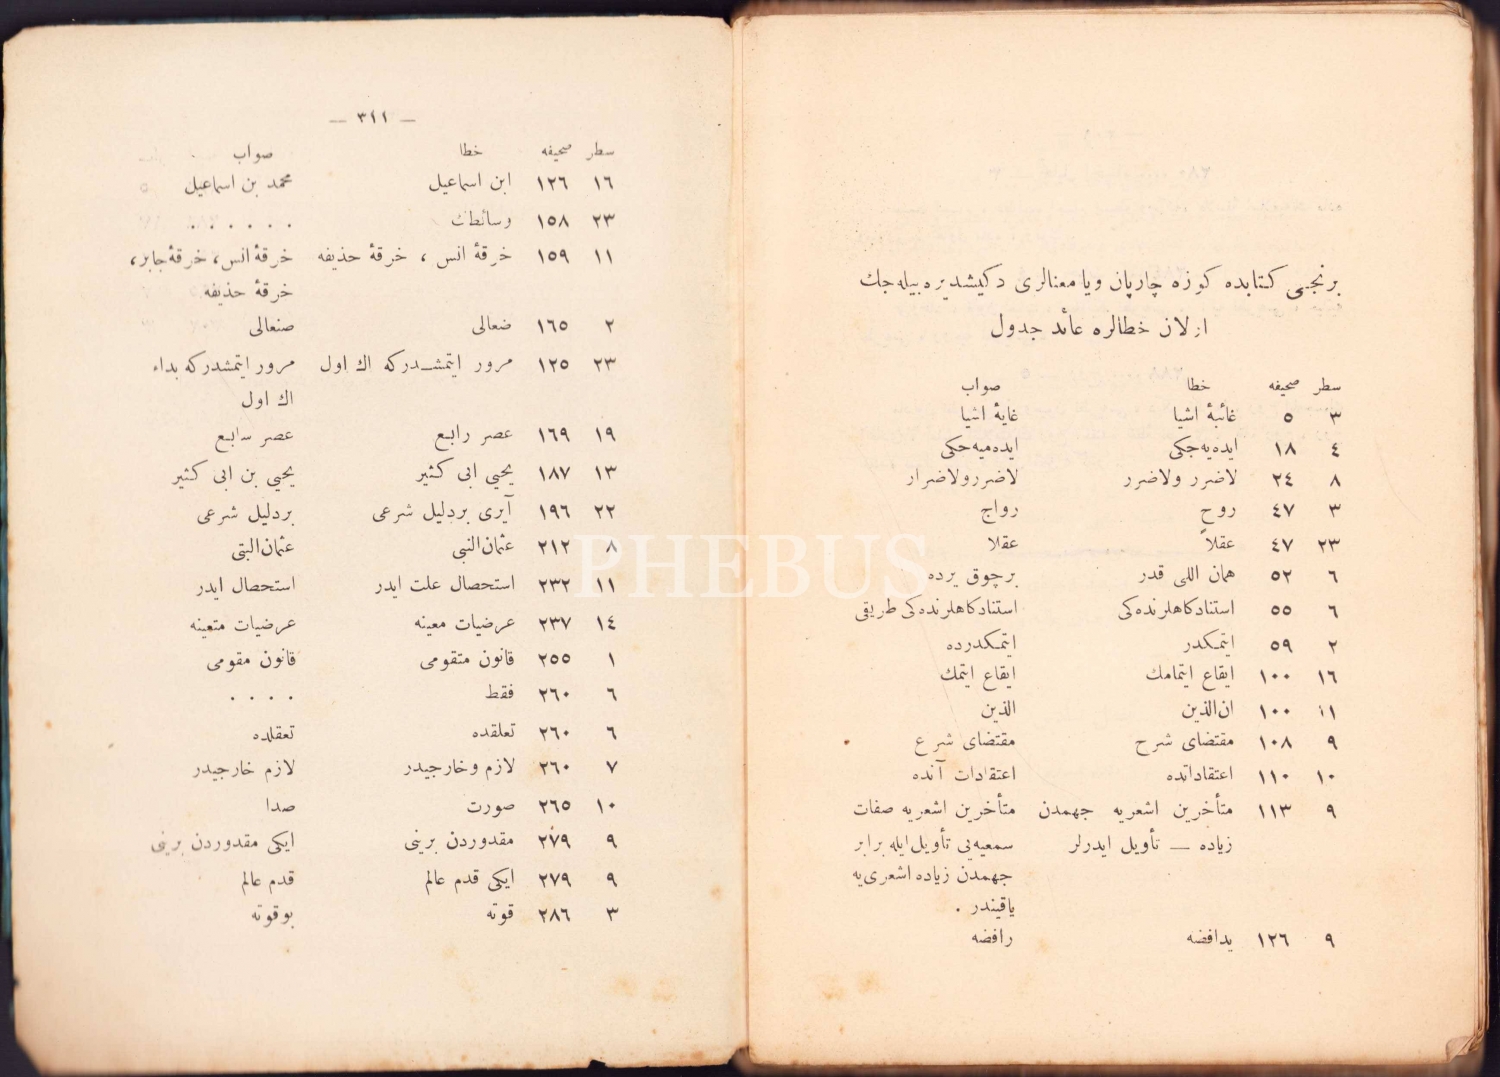 برنجی كتابده كوزه چارپان ویا معنالری دكیشدیره بیله‌جك
اولان خطالره عائد جدول
سطر صحیفه خطا صواب
٣ ٥ غائبهٔ اشیا غایهٔ اشیا
٤ ١٨ ایده‌یه‌جكی ایده‌میه‌جكی
٨ ٢٤ لاضرر ولاضرر لاضررولاضرار
٣ ٤٧ روح رواج
٢٣ ٤٧ عقلاً عقلا
٦ ٥٢ همان اللی قدر برچوق یرده
٦ ٥٥ استنادكاهلرنده‌كی استنادكاهلرنده‌كی طریقی
٢ ٥٩ ایتمكدر ایتمكدرده
١٦ ١٠٠ ایقاع ایتمامك ایقاع ایتمك
١١ ١٠٠ ان‌الذین الذین
٩ ١٠٨ مقتضای شرح مقتضای شرع
١٠ ١١٠ اعتقاداتده اعتقادات آنده
٩ ١١٣ متأخرین اشعریه جهمدن متأخرین اشعریه صفات
زیاده — تأویل ایدرلر سمعیه‌یی تأویل ایله برابر
جهمدن زیاده اشعری‌یه
یاقیندر .
٩ ١٢٦ یدافضه رافضه
— ٣١١ —
سطر صحیفه خطا صواب
١٦ ١٢٦ ابن اسماعیل محمد بن اسماعیل
٢٣ ١٥٨ وسائطك . . . . . .
١١ ١٥٩ خرقهٔ انس ، خرقهٔ حذیفه خرقهٔ انس، خرقهٔ جابر،
خرقهٔ حذیفه
٢ ١٦٥ ضعالی صنعالی
٢٣ ١٢٥ مرور ایتمشدركه اك اول مرور ایتمشدركه بداء
اك اول
١٩ ١٦٩ عصر رابع عصر سابع
١٣ ١٨٧ یحیی ابی كثیر یحیی بن ابی كثیر
٢٢ ١٩٦ آیری بردلیل شرعی بردلیل شرعی
٨ ٢١٢ عثمان‌النبی عثمان‌البتی
١١ ٢٣٢ استحصال علت ایدر استحصال ایدر
١٤ ٢٣٧ عرضیات معینه عرضیات متعینه
١ ٢٥٥ قانون متقومی قانون مقومی
٦ ٢٦٠ فقط . . . .
٦ ٢٦٠ تعلقده تعقلده
٧ ٢٦٠ لازم وخارجیدر لازم خارجیدر
١٠ ٢٦٥ صورت صدا
٩ ٢٧٩ مقدوردن برینی ایكی مقدوردن برینی
٩ ٢٧٩ ایكی قدم عالم قدم عالم
٣ ٢٨٦ قوته بوقوته
PHEBUS